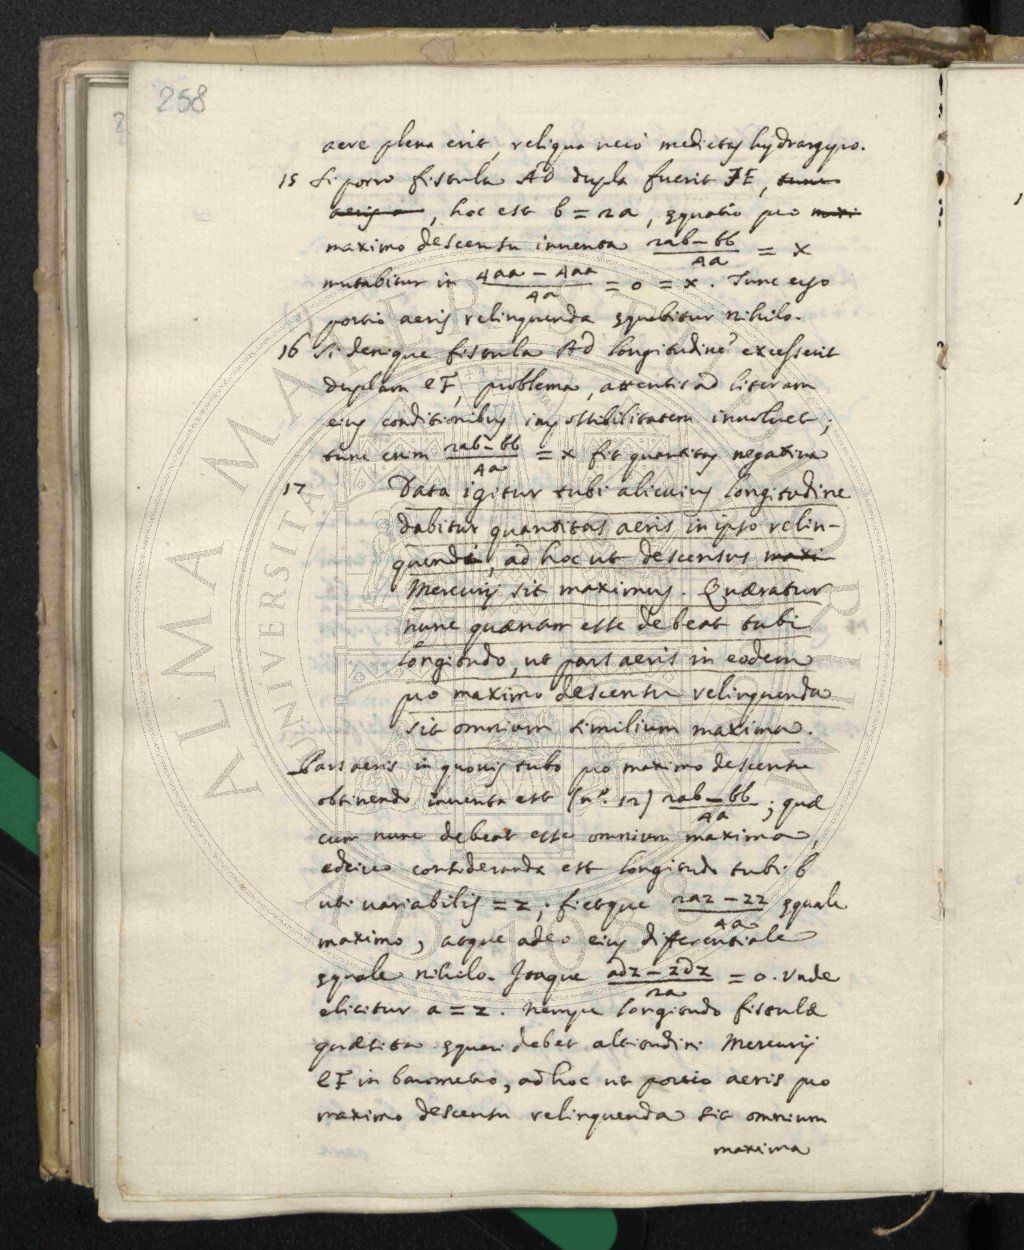 258
aere plena erit, reliqua vero medietas hydrargyro.
15 Si porro fistula AD dupla fuerit FE, tunc
aeris , hoc est b = 2a, equatio pro maxi
maximo descensu inventa 2ab - bb / 4a = x
mutabitur in 4aa - 4aa / 4a = 0 = x. Tunc ergo
portio aeris relinquenda equabitur nihilo.
16 Si denique fistula AD longitudine excesserit
duplam EF, problema, attentis ad literam
eius conditionibus impossibilitatem involvet;
tunc enim 2ab - bb / 4a = x fit quantitas negativa
17 Data igitur tubi alicuius longitudine
dabitur quantitas aeris in ipso relin-
quendi, ad hoc ut descensus maxi
Mercurij sit maximus. Quæratur
nunc quænam esse debeat tubi
longitudo, ut pars aeris in eodem
pro maximo descensu relinquenda
sit omnium similium maxima.
Pars aeris in quovis tubo pro maximo descensu
obtinendo inventa est (n.º 12) 2ab - bb / 4a ; quæ
cum nunc debeat esse omnium maxima,
idcirco consideranda est longitudo tubi b
uti variabilis = z; fietque 2az - zz / 4a equale
maximo, atque adeo eius differentiale
equale nihilo. Itaque adz - zdz / 2a = 0. Unde
elicitur a = z. Nempe longitudo fistulæ
quæsita equari debet altitudini Mercurij
EF in barometro, ad hoc ut portio aeris pro
maximo descensu relinquenda sit omnium
maxima
ALMA MATER STUDIORUM
UNIVERSITA
A.D. 1088